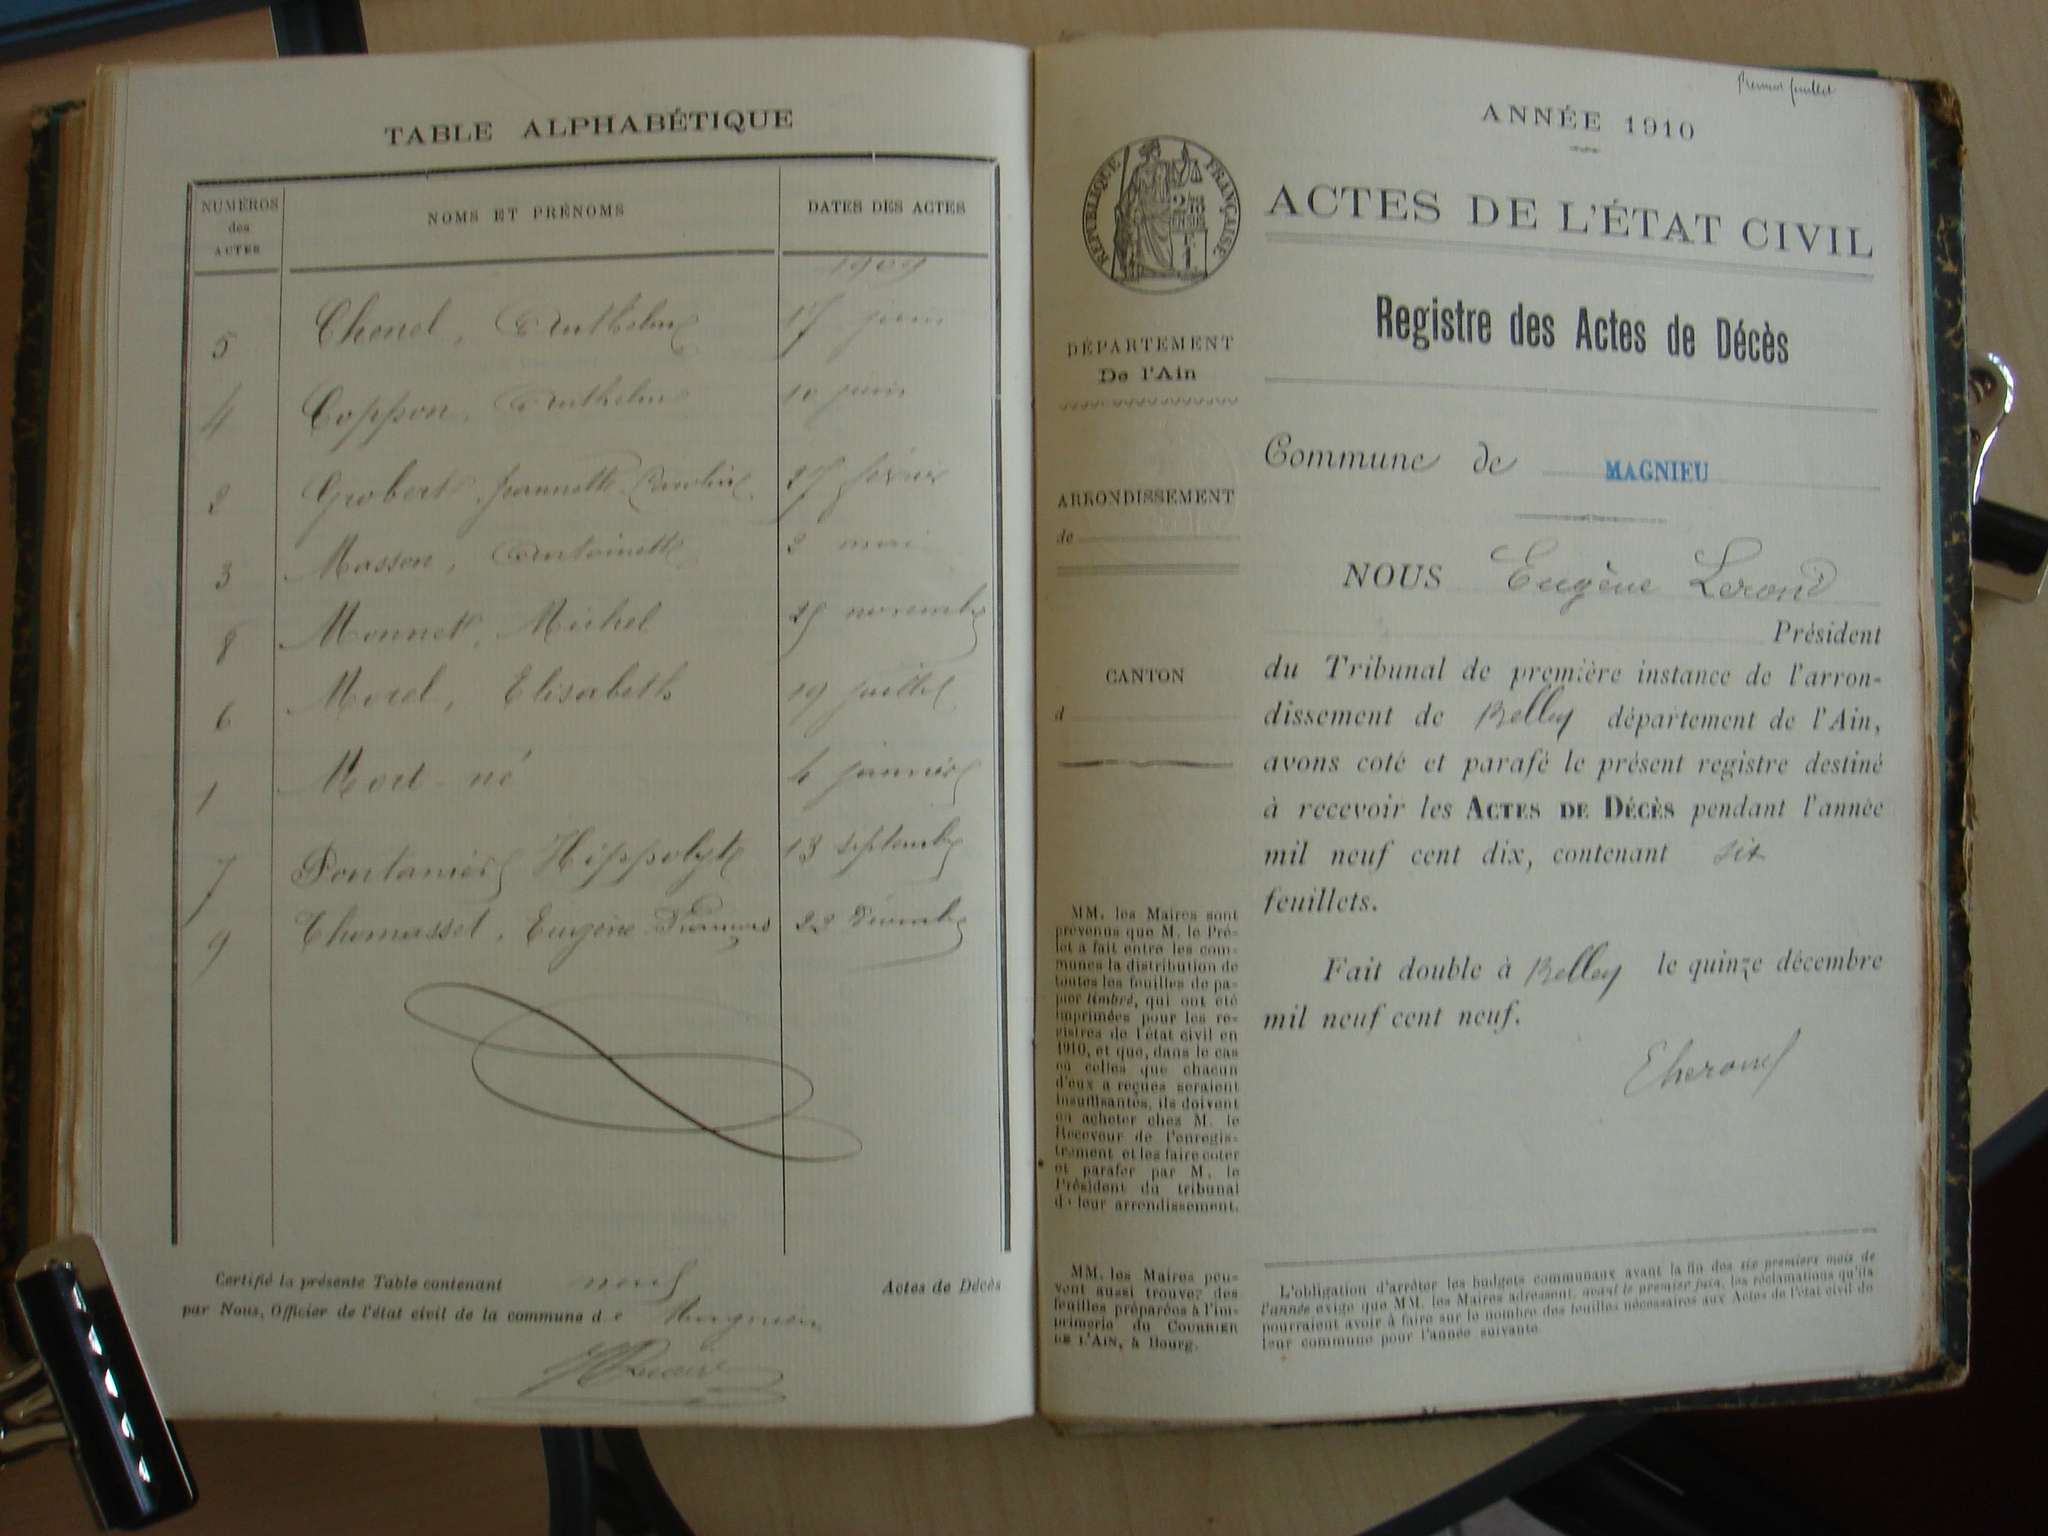 TABLE ALPHABÉTIQUE
NUMÉROS des ACTES
NOMS ET PRÉNOMS
DATES DES ACTES
1909
5 Chenel, Anthelme 17 juin
4 Coppon, Anthelme 10 juin
2 Grobert, Jeannette Caroline 27 février
3 Masson, Antoinette 2 mai
8 Monnet, Michel 25 novembre
6 Morel, Elisabeth 19 juillet
1 Mort-né 4 janvier
7 Pontanier, Hippolyte 13 septembre
9 Thomasset, Eugène François 22 Décembre
Certifié la présente Table contenant neuf Actes de Décès
par Nous, Officier de l'état civil de la commune de Magnieu
Premier feuillet
ANNÉE 1910
RÉPUBLIQUE FRANÇAISE
ACTES DE L'ÉTAT CIVIL
Registre des Actes de Décès
DÉPARTEMENT
De l'Ain
Commune de MAGNIEU
ARRONDISSEMENT
de
NOUS Eugène Lerond
Président
CANTON
d
du Tribunal de première instance de l'arron-
dissement de Belley département de l'Ain,
avons coté et parafé le présent registre destiné
à recevoir les ACTES DE DÉCÈS pendant l'année
mil neuf cent dix, contenant six
feuillets.
Fait double à Belley le quinze décembre
mil neuf cent neuf.
ELerond
MM. les Maires sont
prévenus que M. le Pré-
fet a fait entre les com-
munes la distribution de
toutes les feuilles de pa-
pier timbré, qui ont été
imprimées pour les re-
gistres de l'état civil en
1910, et que, dans le cas
où celles que chacun
d'eux a reçues seraient
insuffisantes, ils doivent
en acheter chez M. le
Receveur de l'enregis-
trement et les faire coter
et parafer par M. le
Président du tribunal
de leur arrondissement.
MM. les Maires peu-
vent aussi trouver des
feuilles préparées à l'im-
primerie du COURRIER
DE L'AIN, à Bourg.
L'obligation d'arrêter les budgets communaux avant la fin des six premiers mois de
l'année exige que MM. les Maires adressent, avant le premier juin, les réclamations qu'ils
pourraient avoir à faire sur le nombre des feuilles nécessaires aux Actes de l'état civil de
leur commune pour l'année suivante.